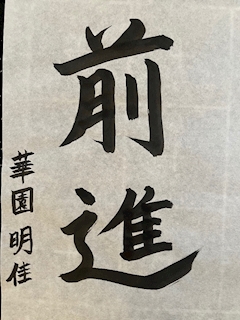 前進
華園明佳